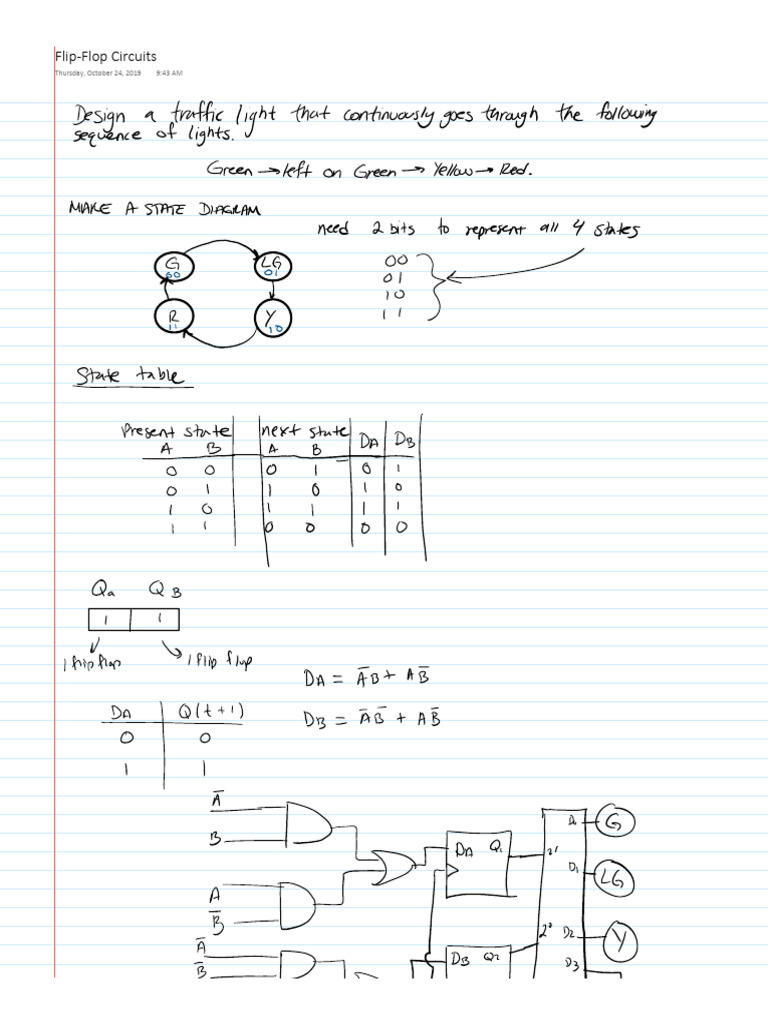 Flip-Flop Circuits
Thursday, October 24, 2019 9:43 AM
Design a traffic light that continuously goes through the following
sequence of lights.
Green → left on Green → Yellow → Red.
MAKE A STATE DIAGRAM
need 2 bits to represent all 4 states
G
00
LG
01
R
11
Y
10
00
01
10
11
State table
Present state next state DA DB
A B A B
0 0 0 1 0 1
0 1 1 0 1 0
1 0 1 1 1 1
1 1 0 0 0 0
Qa QB
1 1
1 flip flop 1 flip flop
DA = A̅B + AB̅
DB = A̅B̅ + AB̅
DA Q(t+1)
0 0
1 1
A̅
B
A
B̅
A̅
B̅
DA Q1
DB Q2
2¹
2⁰
D0 G
D1 LG
D2 Y
D3